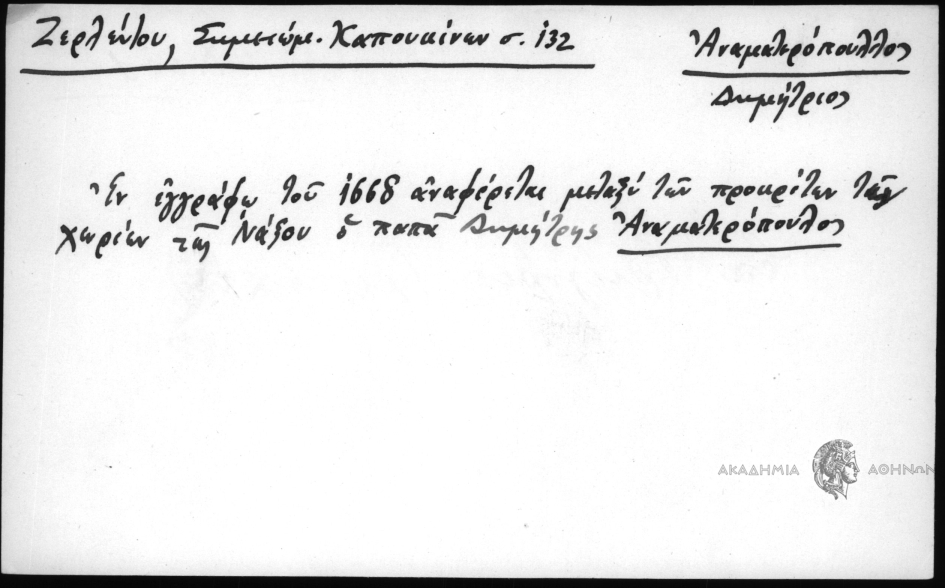 Ζερλέντου, Σημειώμ. Καπουκίνων σ. 132
Ἀναματερόπουλλος
Δημήτριος
Ἐν ἐγγράφῳ τοῦ 1668 ἀναφέρεται μεταξὺ τῶν προκρίτων τῶν
χωρίων τῆς Νάξου ὁ παπᾶ Δημήτρης Ἀναματερόπουλος
ΑΚΑΔΗΜΙΑ ΑΘΗΝΩΝ